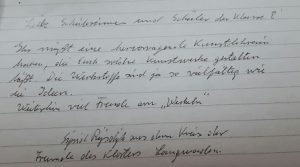 Liebe Schülerinnen und Schüler der Klasse 8!
Ihr müßt eine hervorragende Kunstlehrerin
haben, die Euch solche Kunstwerke gestalten
läßt. Die Werkstoffe sind ja so vielfältig wie
die Ideen.
Weiterhin viel Freude am „Werkeln"
aus dem Kreis der
Freunde des Klosters